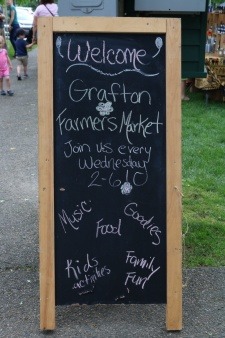 Welcome
Grafton
Farmers Market
Join us every
Wednesday
2-6!
Music Goodies
Food
Kids Family
activities Fun!